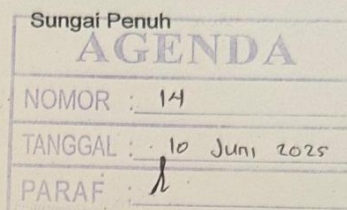 Sungai Penuh
AGENDA
NOMOR : 14
TANGGAL : 10 Juni 2025
PARAF :